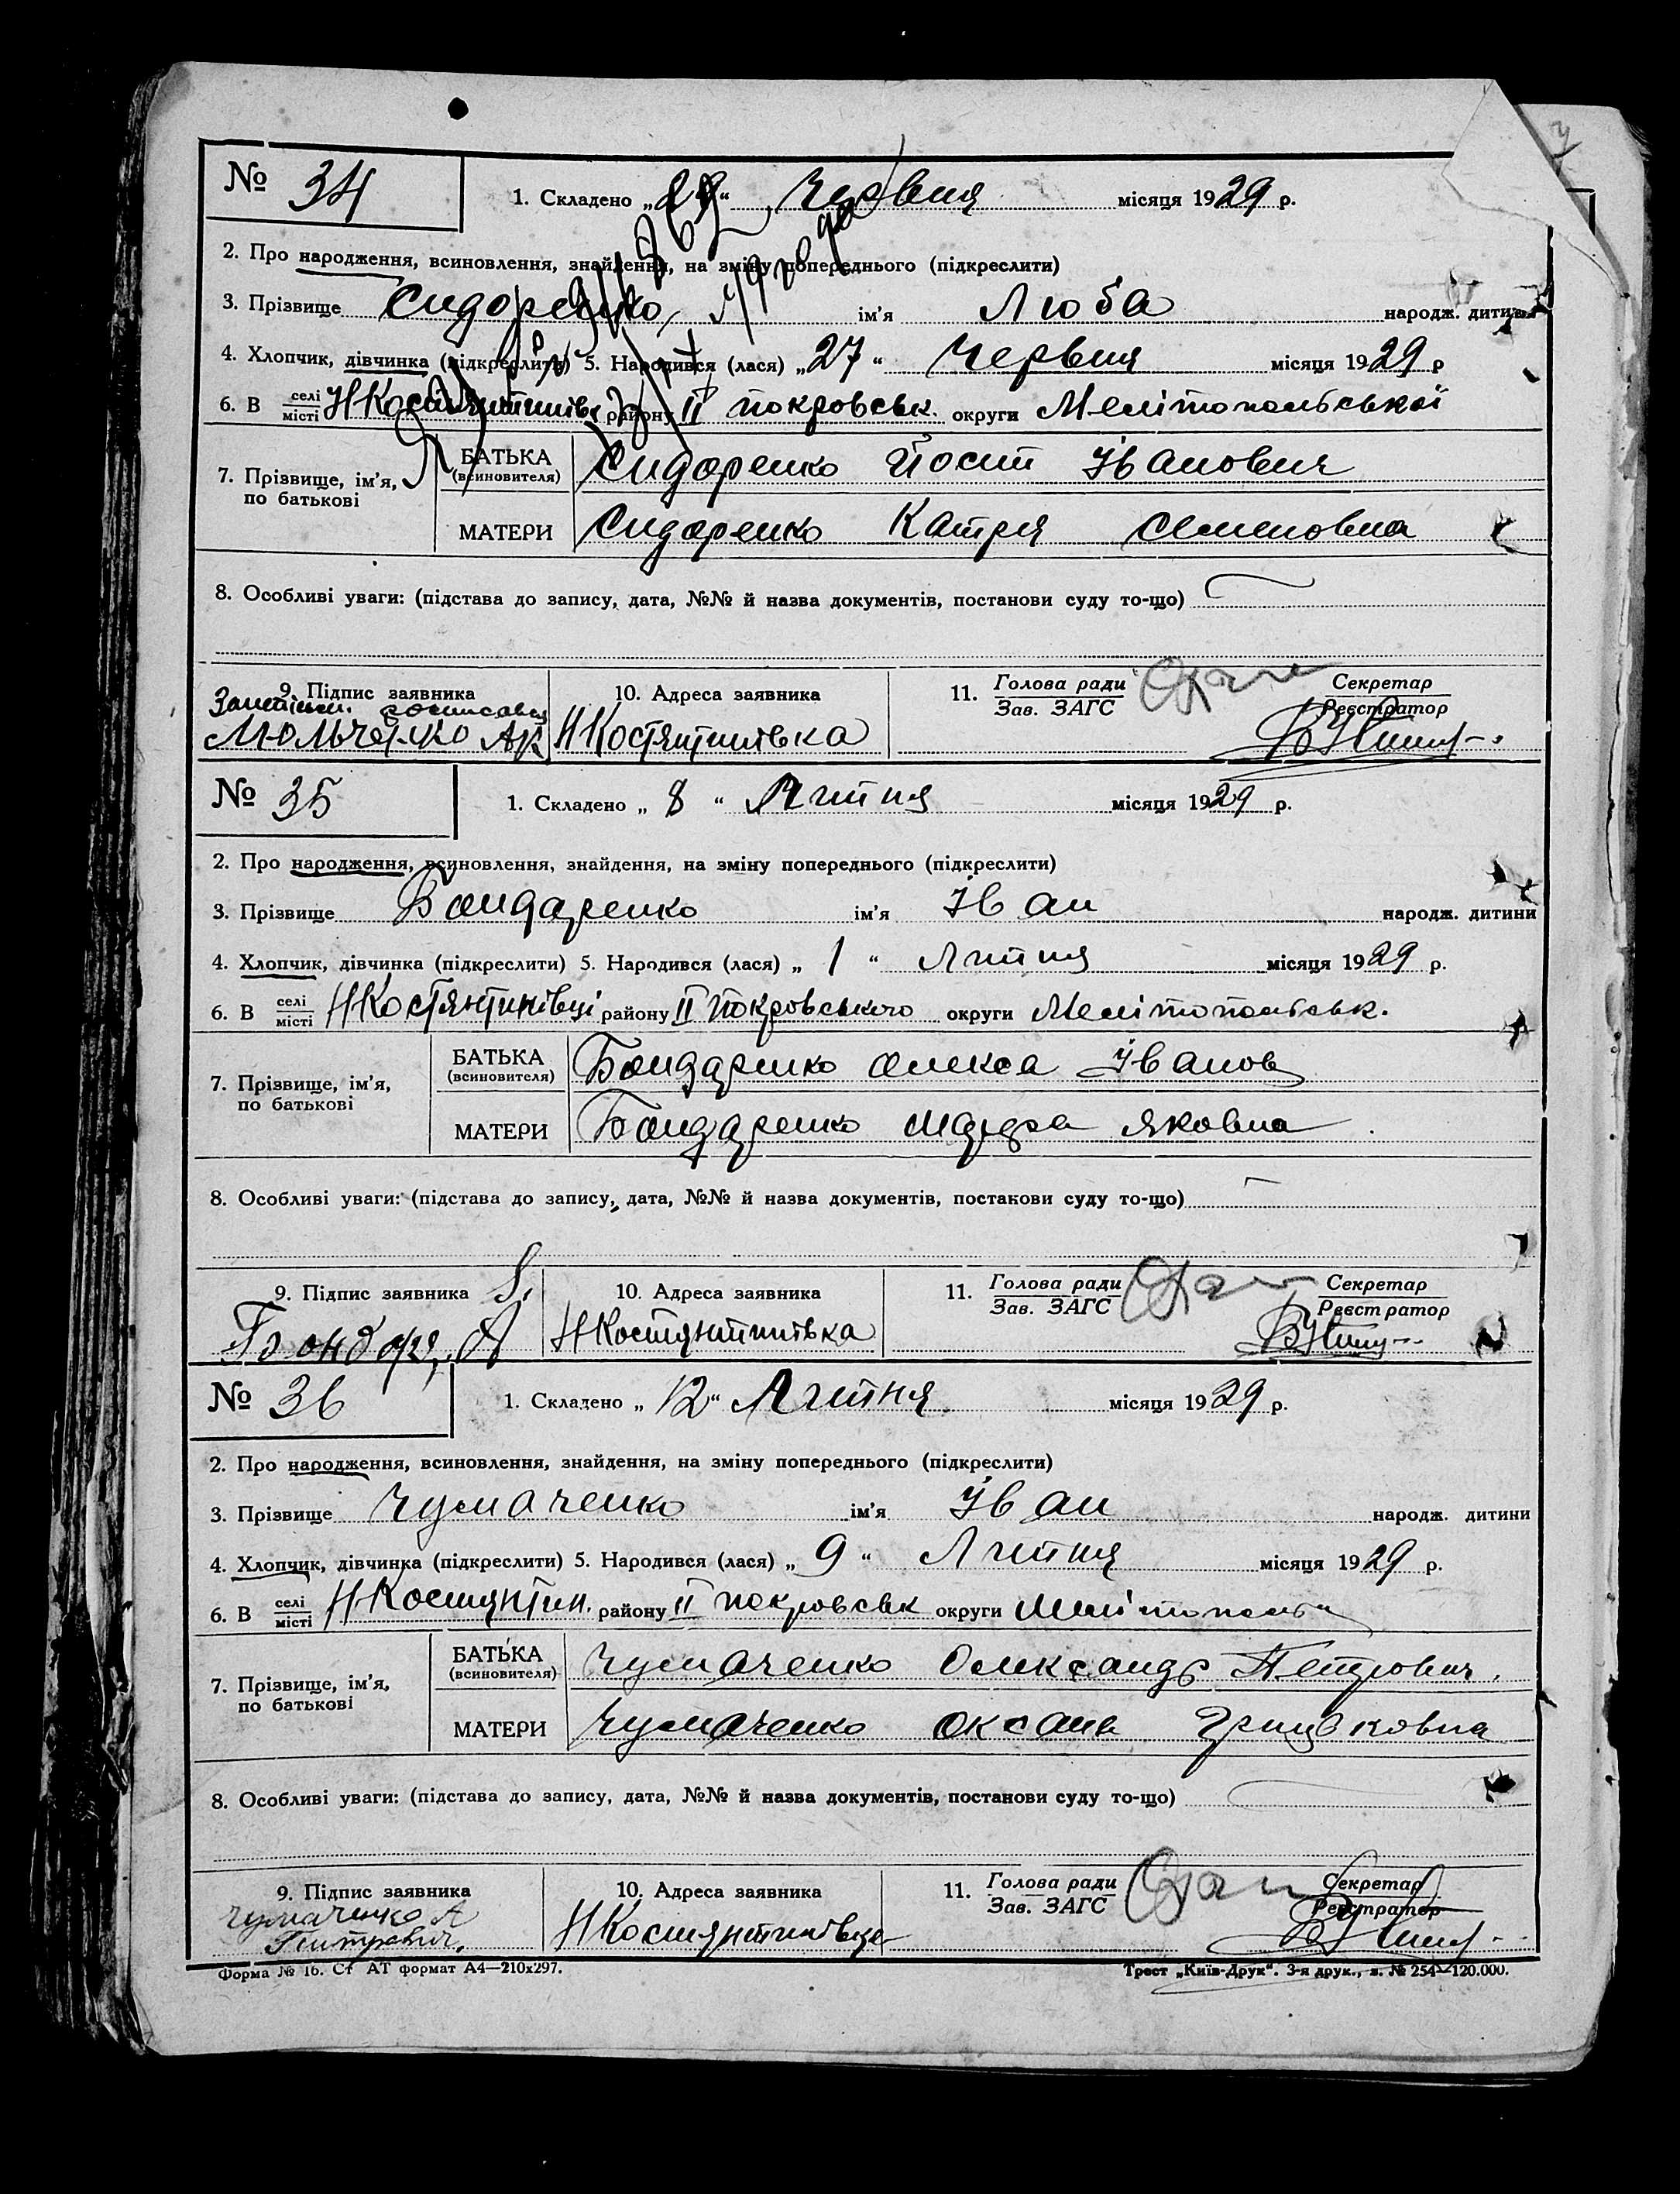 № 34
1. Складено „29“ Червня місяця 1929 р.
2. Про народження, всиновлення, знайдення, на зміну попереднього (підкреслити)
3. Прізвище Сидоренко, ім'я Люба народж. дитини
4. Хлопчик, дівчинка (підкреслити) 5. Народився (лася) „27“ Червня місяця 1929 р
6. В селі місті НКостянтинівц району II покровськ. округи Мелітопольської
7. Прізвище, ім'я, по батькові
БАТЬКА (всиновителя) Сидоренко Йосип Іванович
МАТЕРИ Сидоренко Катря Семеновна
8. Особливі уваги: (підстава до запису, дата, №№ й назва документів, постанови суду то-що)
9. Підпис заявника 10. Адреса заявника 11. Голова ради Зав. ЗАГС Секретар Реєстратор
НКостянтинівка
№ 35
1. Складено „ 8 “ Липня місяця 1929 р.
2. Про народження, всиновлення, знайдення, на зміну попереднього (підкреслити)
3. Прізвище Бондаренко ім'я Іван народж. дитини
4. Хлопчик, дівчинка (підкреслити) 5. Народився (лася) „ 1 “ Липня місяця 1929 р.
6. В селі місті НКостянтинівці району II Покровського округи Мелітопольськ.
7. Прізвище, ім'я, по батькові
БАТЬКА (всиновителя) Бондаренко Олекса Іванов
МАТЕРИ Бондаренко Яковна
8. Особливі уваги: (підстава до запису, дата, №№ й назва документів, постанови суду то-що)
9. Підпис заявника 10. Адреса заявника 11. Голова ради Зав. ЗАГС Секретар Реєстратор
НКостянтинівка
№ 36
1. Складено „ 12 “ Липня місяця 1929 р.
2. Про народження, всиновлення, знайдення, на зміну попереднього (підкреслити)
3. Прізвище Чумаченко ім'я Іван народж. дитини
4. Хлопчик, дівчинка (підкреслити) 5. Народився (лася) „ 9 “ Липня місяця 1929 р.
6. В селі місті НКостянтин. району II покровськ округи
7. Прізвище, ім'я, по батькові
БАТЬКА (всиновителя) Чумаченко Олександр Петрович.
МАТЕРИ Чумаченко Оксана
8. Особливі уваги: (підстава до запису, дата, №№ й назва документів, постанови суду то-що)
9. Підпис заявника 10. Адреса заявника 11. Голова ради Зав. ЗАГС Секретар Реєстратор
Чумаченко А
НКостянтинівце
Форма № 16. Ст АТ формат А4—210х297. Трест „Київ-Друк“. 3-я друк., з. № 254—120.000.